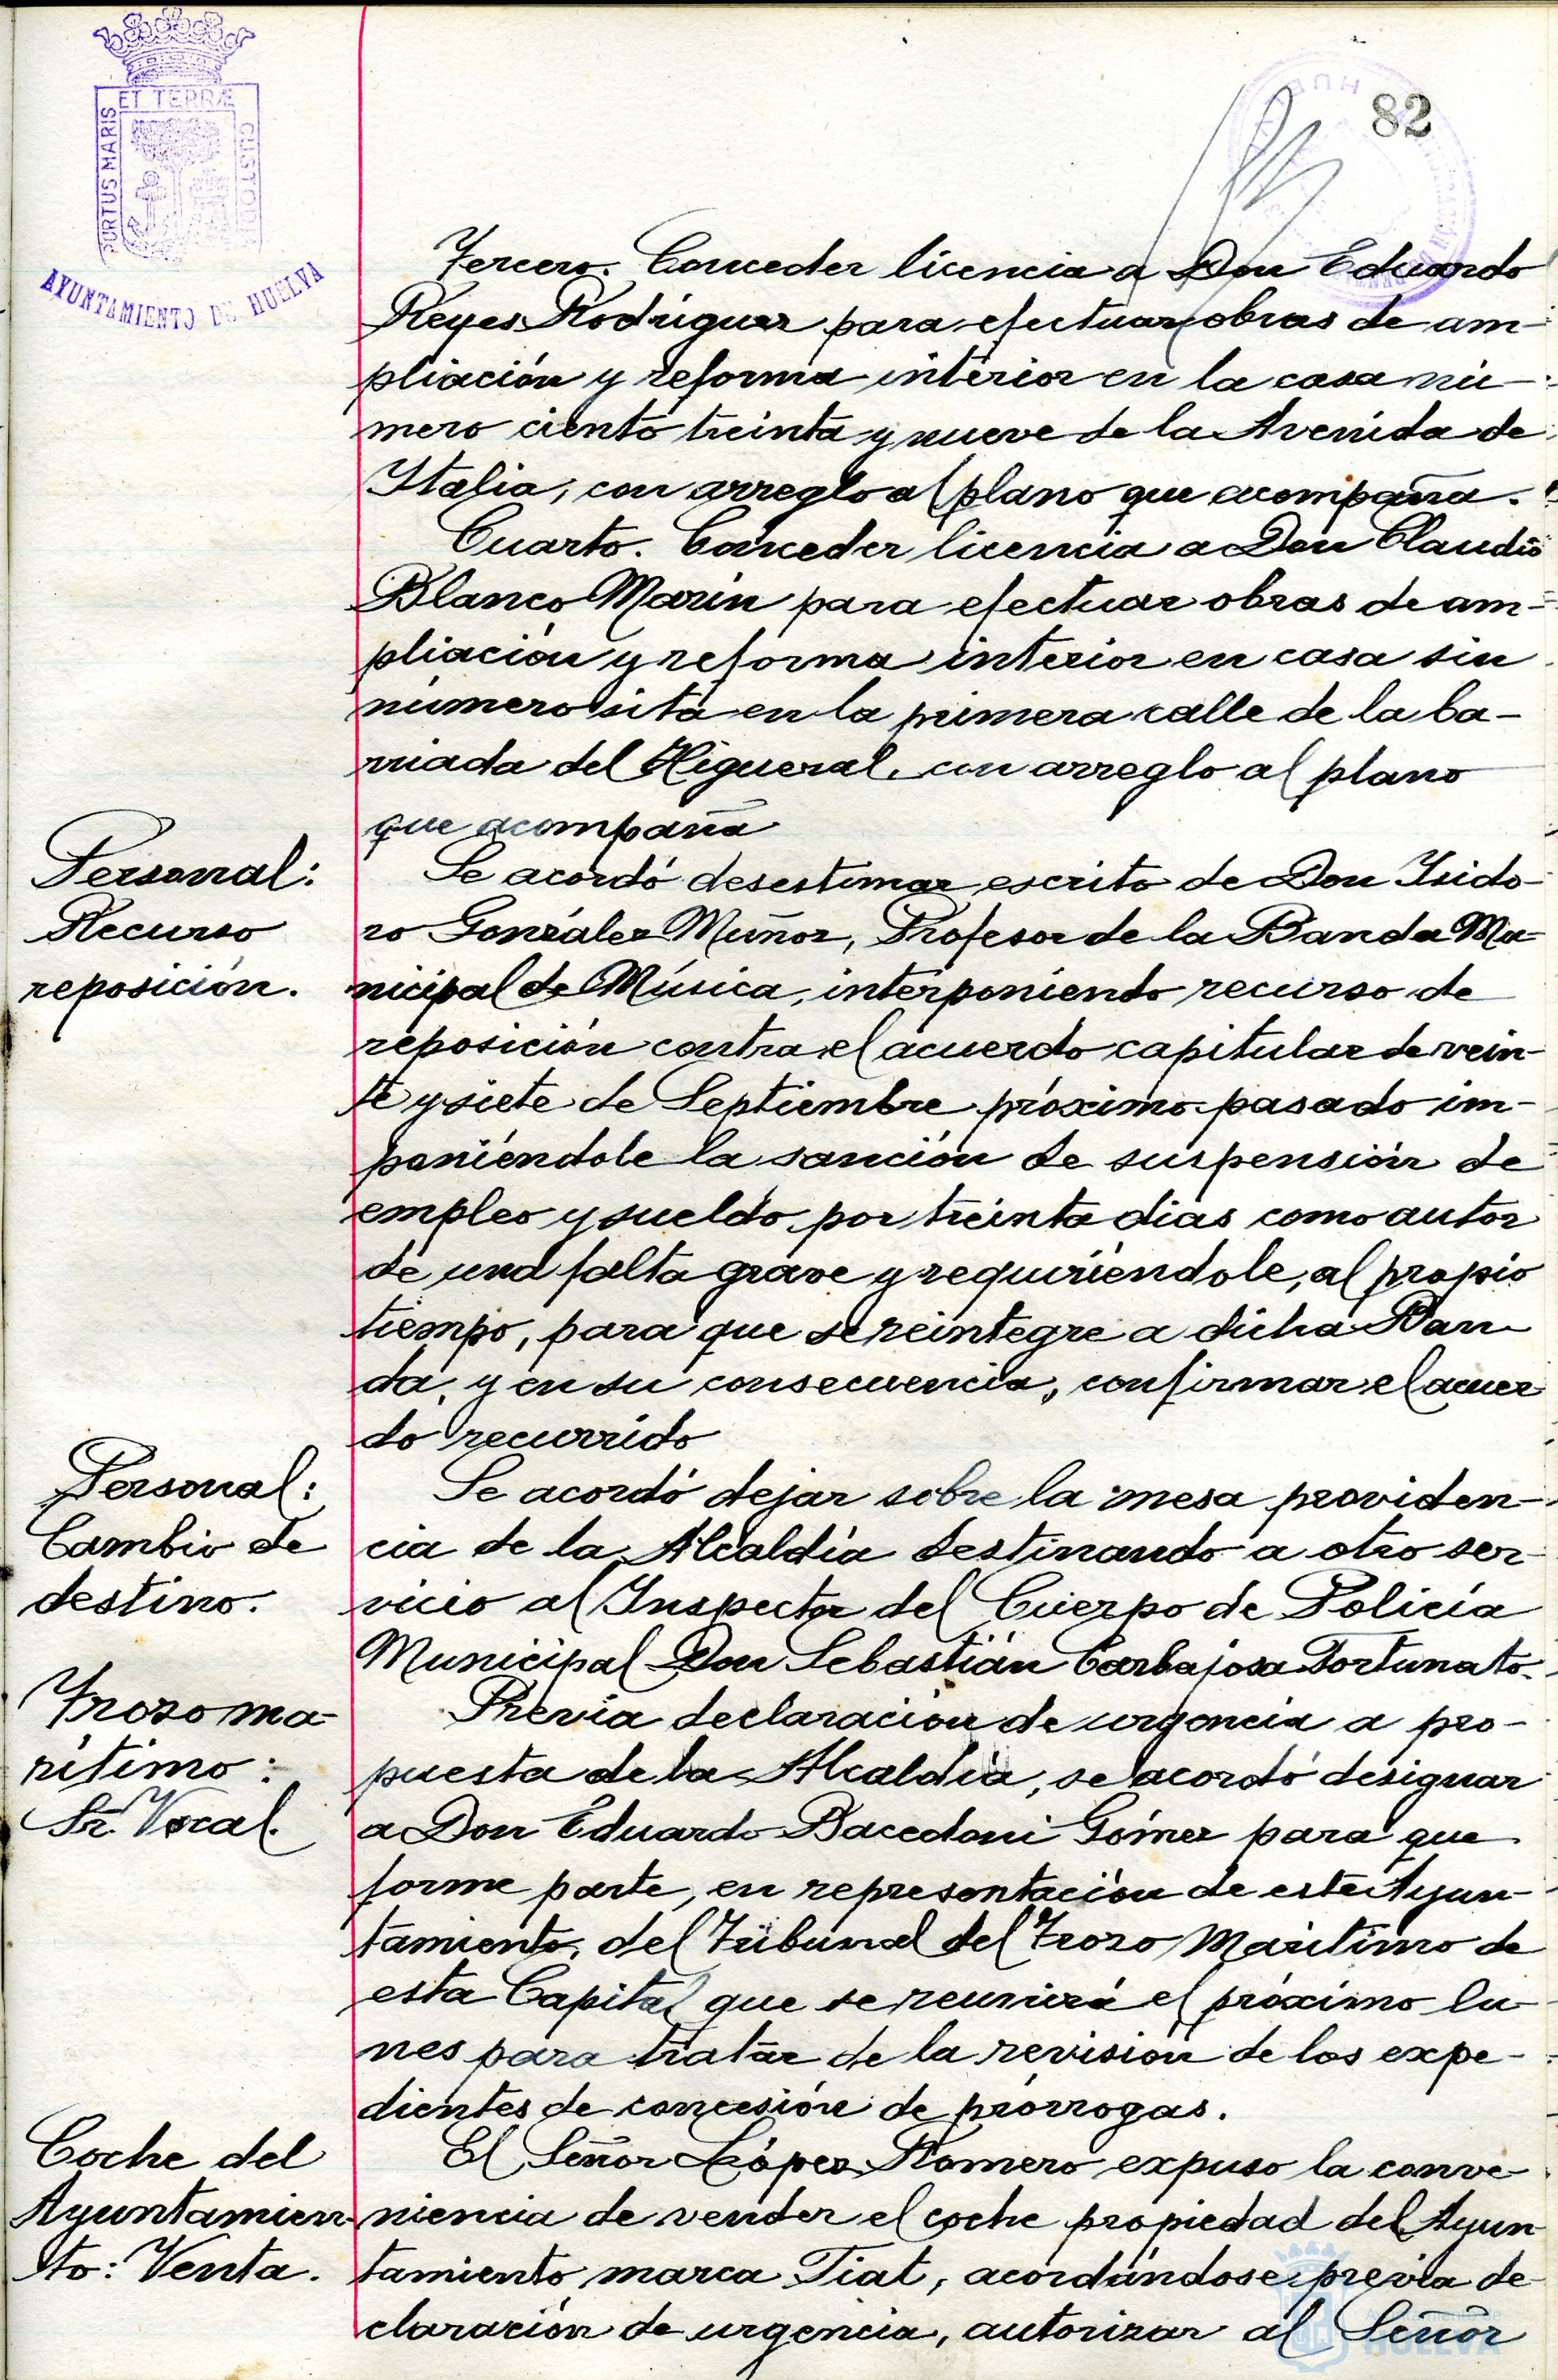 PORTUS MARIS ET TERRÆ CUSTODIA
AYUNTAMIENTO DE HUELVA
82
Tercero. Conceder licencia a Don Eduardo
Reyes Rodríguez para efectuar obras de am-
pliación y reforma interior en la casa nú-
mero ciento treinta y nueve de la Avenida de
Italia, con arreglo al plano que acompaña.
Cuarto. Conceder licencia a Don Claudio
Blanco Marín para efectuar obras de am-
pliación y reforma interior en casa sin
número sita en la primera calle de la ba-
rriada del Higueral, con arreglo al plano
que acompaña
Personal:
Recurso
reposición.
Se acordó desestimar escrito de Don Isido-
ro González Muñoz, Profesor de la Banda Mu-
nicipal de Música, interponiendo recurso de
reposición contra el acuerdo capitular de vein-
te y siete de Septiembre próximo pasado im-
poniéndole la sanción de suspensión de
empleo y sueldo por treinta días como autor
de una falta grave y requiriéndole, al propio
tiempo, para que se reintegre a dicha Ban-
da, y en su consecuencia, confirmar el acuer
do recurrido
Personal:
Cambio de
destino.
Se acordó dejar sobre la mesa providen-
cia de la Alcaldía destinando a otro ser-
vicio al Inspector del Cuerpo de Policía
Municipal Don Sebastián Carbajosa Fortunato.
Trozo ma-
rítimo:
Sr. Vocal.
Previa declaración de urgencia a pro-
puesta de la Alcaldía, se acordó designar
a Don Eduardo Bacedoni Gómez para que
forme parte, en representación de este Ayun-
tamiento, del Tribunal del Trozo Marítimo de
esta Capital que se reunirá el próximo lu-
nes para tratar de la revisión de los expe-
dientes de concesión de prórrogas.
Coche del
Ayuntamien-
to: Venta.
El Señor López Romero expuso la conve-
niencia de vender el coche propiedad del Ayun
tamiento marca Fiat, acordándose, previa de-
claración de urgencia, autorizar al Señor
HUELVA